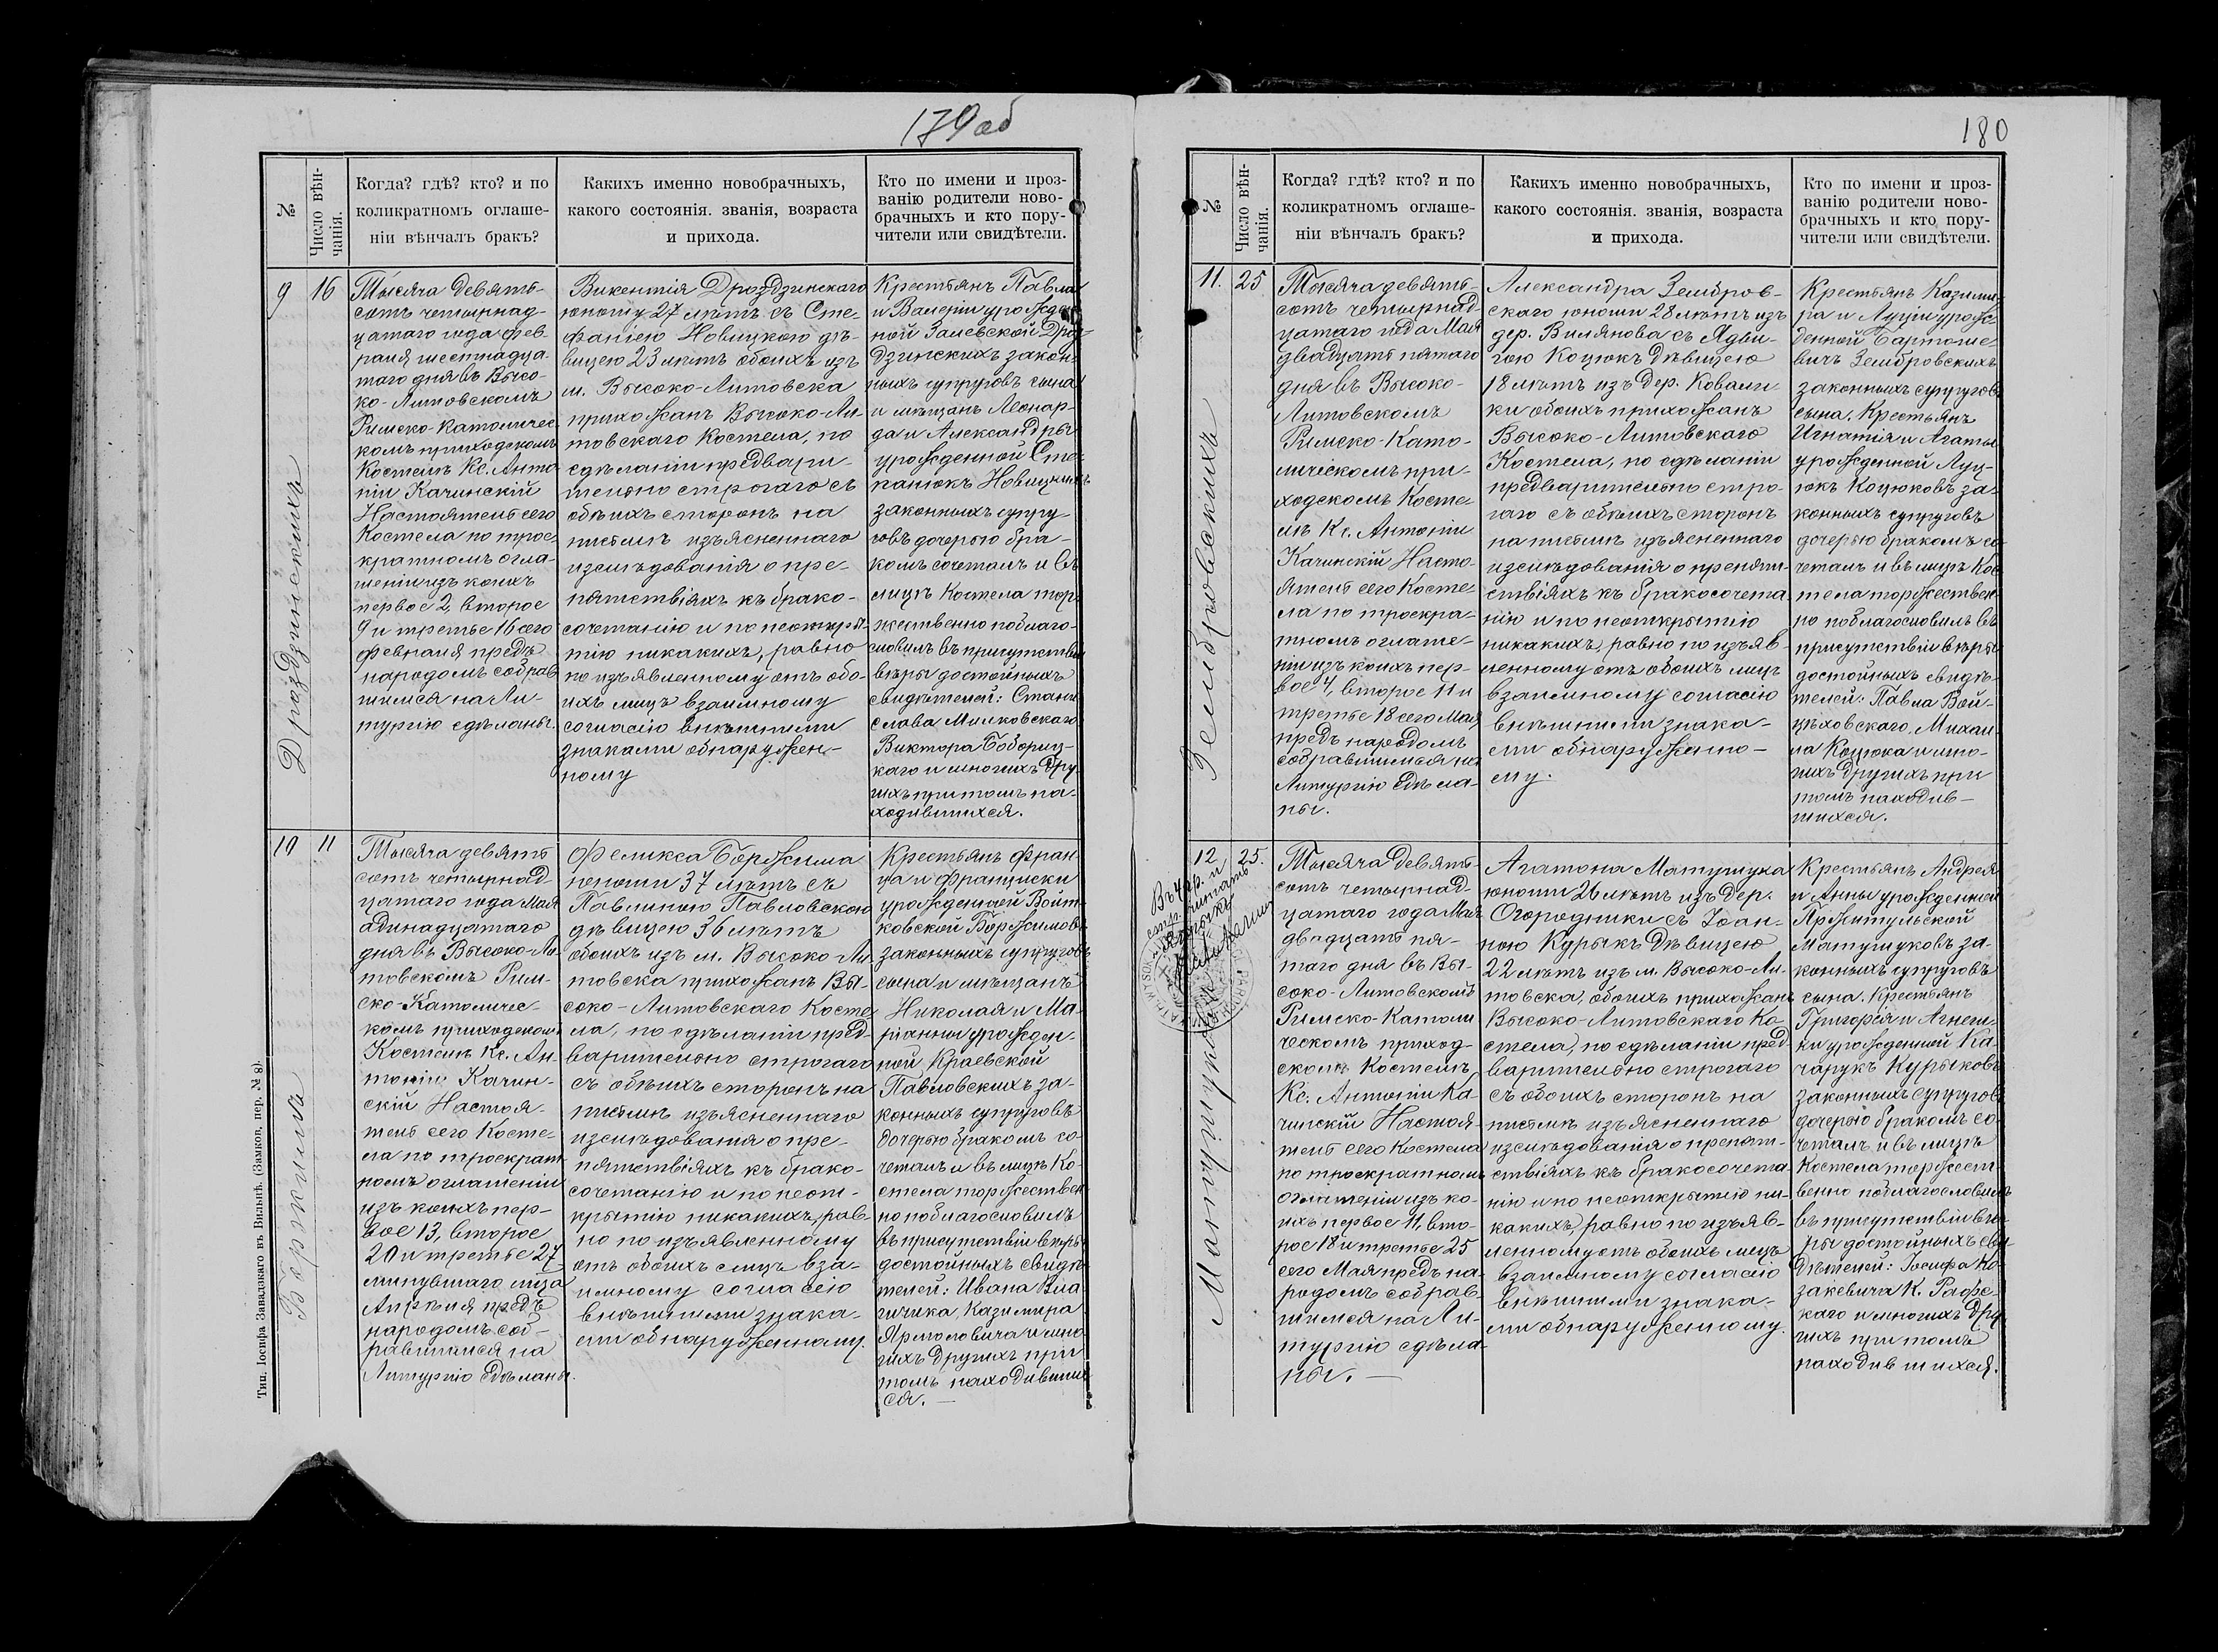 179 об
№
Число вѣн-
чанія.
Когда? гдѣ? кто? и по
коликратномъ оглаше-
ніи вѣнчалъ бракъ?
Какихъ именно новобрачныхъ,
какого состоянія. званія, возраста
и прихода.
Кто по имени и проз-
ванію родители ново-
брачныхъ и кто пору-
чители или свидѣтели.
9
16
Дроздзинскихъ
Тысяча девять-
сотъ четырнад-
цатаго года фев
раля шестнадца-
таго дня въ Высо-
ко-Литовскомъ
Римско-Католичес
комъ приходскомъ
Костелѣ Кс. Анто
ній Качинскій
Настоятель сего
Костела по трое
кратномъ огла-
шеніи изъ коихъ
первое 2, второе
9 и третье 16 сего
февраля предъ
народомъ собрав
шимся на Ли-
тургію сдѣланы.
Викентія Дроздзинскаго
юношу 27 лѣтъ съ Сте-
фаніею Новицкою дѣ-
вицею 23 лѣтъ обоихъ изъ
м. Высоко-Литовска
прихожанъ Высоко-Ли-
товскаго Костела, по
сдѣланіи предвари-
тельно строгаго съ
обѣихъ сторонъ на
письмѣ изъясненнаго
изслѣдованія о пре-
пятствіяхъ къ брако-
сочетанію и по неоткры-
тію никакихъ, равно
по изъявленному отъ обо-
ихъ лицъ взаимному
согласію внѣшними
знаками обнаружен-
ному
Крестьянъ Павла
и Валеріи урожден
ной Залевской Дроз-
дзинскихъ закон-
ныхъ супруговъ сына
и мѣщанъ Леонар-
да и Александры
урожденной Сте-
панюкъ Новицкихъ
законныхъ супру-
говъ дочерью бра-
комъ сочеталъ и въ
лицѣ Костела тор-
жественно поблаго-
словилъ въ присутствіи
вѣры достойныхъ
свидѣтелей: Стани
слава Милковскаго
Виктора Бобориц-
каго и многихъ дру-
гихъ при томъ на-
ходившихся.
10
11
Боржимъ
Тысяча девять
сотъ четырнад
цатаго года Мая
адинадцатаго
дня въ Высоко-Ли
товскомъ Рим-
ско-Католичес-
комъ приходскомъ
Костелѣ Кс. Ан
тоній Качин-
скій Настоя-
тель сего Косте-
ла по троекрат
номъ оглашеніи
изъ коихъ пер-
вое 13, второе
20 и третье 27
минувшаго м-ца
Апрѣля предъ
народомъ соб-
равшимся на
Литургію сдѣланы.
Феликса Боржима
юноши 37 лѣтъ съ
Павлиною Павловскою
дѣвицею 36 лѣтъ
обоихъ изъ м. Высоко-Ли
товска прихожанъ Вы-
соко-Литовскаго Косте
ла, по сдѣланіи пред-
варительно строгаго
съ обѣихъ сторонъ на
письмѣ изъясненнаго
изслѣдованія о пре-
пятствіяхъ къ брако-
сочетанію и по неот-
крытію никакихъ, рав
но по изъявленному
отъ обоихъ лицъ вза-
имному согласію
внѣшними знака-
ми обнаруженному.
Крестьянъ Фран-
ца и Франциски
урожденной Войт-
ковской Боржимовъ
законныхъ супруговъ
сына и мѣщанъ
Николая и Ма-
ріанны урожден-
ной Краевской
Павловскихъ за-
конныхъ супруговъ
дочерью бракомъ со-
четалъ и въ лицѣ Ко-
стела торжествен
но поблагословилъ
въ присутствіи вѣры
достойныхъ свидѣ-
телей: Ивана
Казимира
Ярмоловича и мно
гихъ другихъ при
томъ находивших
ся.
Тип. Іосифа Завадзкаго въ Вильнѣ. (Замков. пер. № 8).
180
№
Число вѣн-
чанія.
Когда? гдѣ? кто? и по
коликратномъ оглаше-
ніи вѣнчалъ бракъ?
Какихъ именно новобрачныхъ,
какого состоянія. званія, возраста
и прихода.
Кто по имени и проз-
ванію родители ново-
брачныхъ и кто пору-
чители или свидѣтели.
11.
25
Зембровскихъ
Тысяча девять-
сотъ четырнад
цатаго года Мая
двадцать пятаго
дня въ Высоко-
Литовскомъ
Римско-Като-
лическомъ при-
ходскомъ Косте
лѣ Кс. Антоній
Качинскій Насто-
ятель сего Косте-
ла по троекра-
тномъ оглаше-
ніи изъ коихъ пер-
вое 4, второе 11 и
третье 18 сего Мая
предъ народомъ
собравшимся на
Литургію сдѣла-
ны.
Александра Зембров-
скаго юноши 28 лѣтъ изъ
дер. Вилянова съ Ядви-
гою Коцюкъ дѣвицею
18 лѣтъ изъ дер. Ковали
ки обоихъ прихожанъ
Высоко-Литовскаго
Костела, по сдѣланіи
предварительно стро-
гаго съ обѣихъ сторонъ
на письмѣ изъясненнаго
изслѣдованія о препят-
ствіяхъ къ бракосочета
нію и по неоткрытію
никакихъ, равно по изъяв-
ленному отъ обоихъ лицъ
взаимному согласію
внѣшними знака-
ми обнаруженно-
му.
Крестьянъ Казими-
ра и Луціи урож-
денной Бартоше-
вичъ Зембровскихъ
законныхъ супруговъ
сына, Крестьянъ
Игнатія и Агаты
урожденной Луц-
юкъ Коцюковъ за-
конныхъ супруговъ
дочерью бракомъ со
четалъ и въ лицѣ Кос
тела торжествен-
но поблагословилъ въ
присутствіи вѣры
достойныхъ свидѣ-
телей: Павла Вой-
цѣховскаго, Михаи-
ла Коцюка и мно-
гихъ другихъ при
томъ находив-
шихся.
12
25.
Матушуковъ
Тысяча девять-
сотъ четырнад-
цатаго года Мая
двадцать пя-
таго дня въ Вы-
соко-Литовскомъ
Римско-Католи
ческомъ приход-
скомъ Костелѣ
Кс. Антоній Ка-
чинскій Настоя-
тель сего Костела
по троекратномъ
оглашеніи изъ ко-
ихъ первое 11, вто-
рое 18 и третье 25
сего Мая предъ на-
родомъ собрав-
шимся на Ли-
тургію сдѣла-
ны.
Агатона Матушука
юноши 26 лѣтъ изъ дер.
Огородники съ Іоан-
ною Курыкъ дѣвицею
22 лѣтъ изъ м. Высоко-Ли-
товска, обоихъ прихожанъ
Высоко-Литовскаго Ко
стела, по сдѣланіи пред
варительно строгаго
съ обоихъ сторонъ на
письмѣ изъясненнаго
изслѣдованія о препят-
ствіяхъ къ бракосочета
нію и по неоткрытію ни-
какихъ, равно по изъяв-
ленному отъ обоихъ лицъ
взаимному согласію
внѣшними знака-
ми обнаруженному.
Крестьянъ Андрея
и Анны урожденной
Матушуковъ за-
конныхъ супруговъ
сына, Крестьянъ
Григорія и Агнеш-
ки урожденной Ка-
чарукъ Курыковъ
законныхъ супругов
дочерью бракомъ со-
четалъ и въ лицѣ
Костела торжест
венно поблагословилъ
въ присутствіи вѣ-
ры достойныхъ сви
дѣтелей: Іосифа Ко-
закевича К. Рафс-
каго и многихъ дру
гихъ при томъ
находившихся.